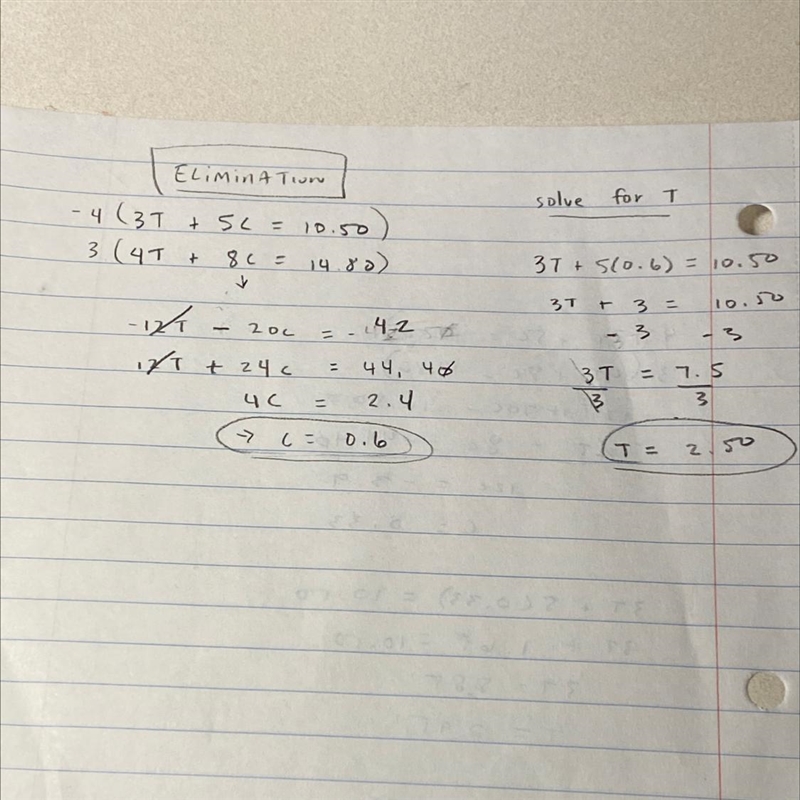 ELIMINATION
-4 (3T + 5C = 10.50)
3 (4T + 8C = 14.80)
↓
-12T - 20C = -42
12T + 24C = 44.40
4C = 2.4
→ C = 0.6
solve for T
3T + 5(0.6) = 10.50
3T + 3 = 10.50
- 3 - 3
3T = 7.5
3 3
T = 2.50